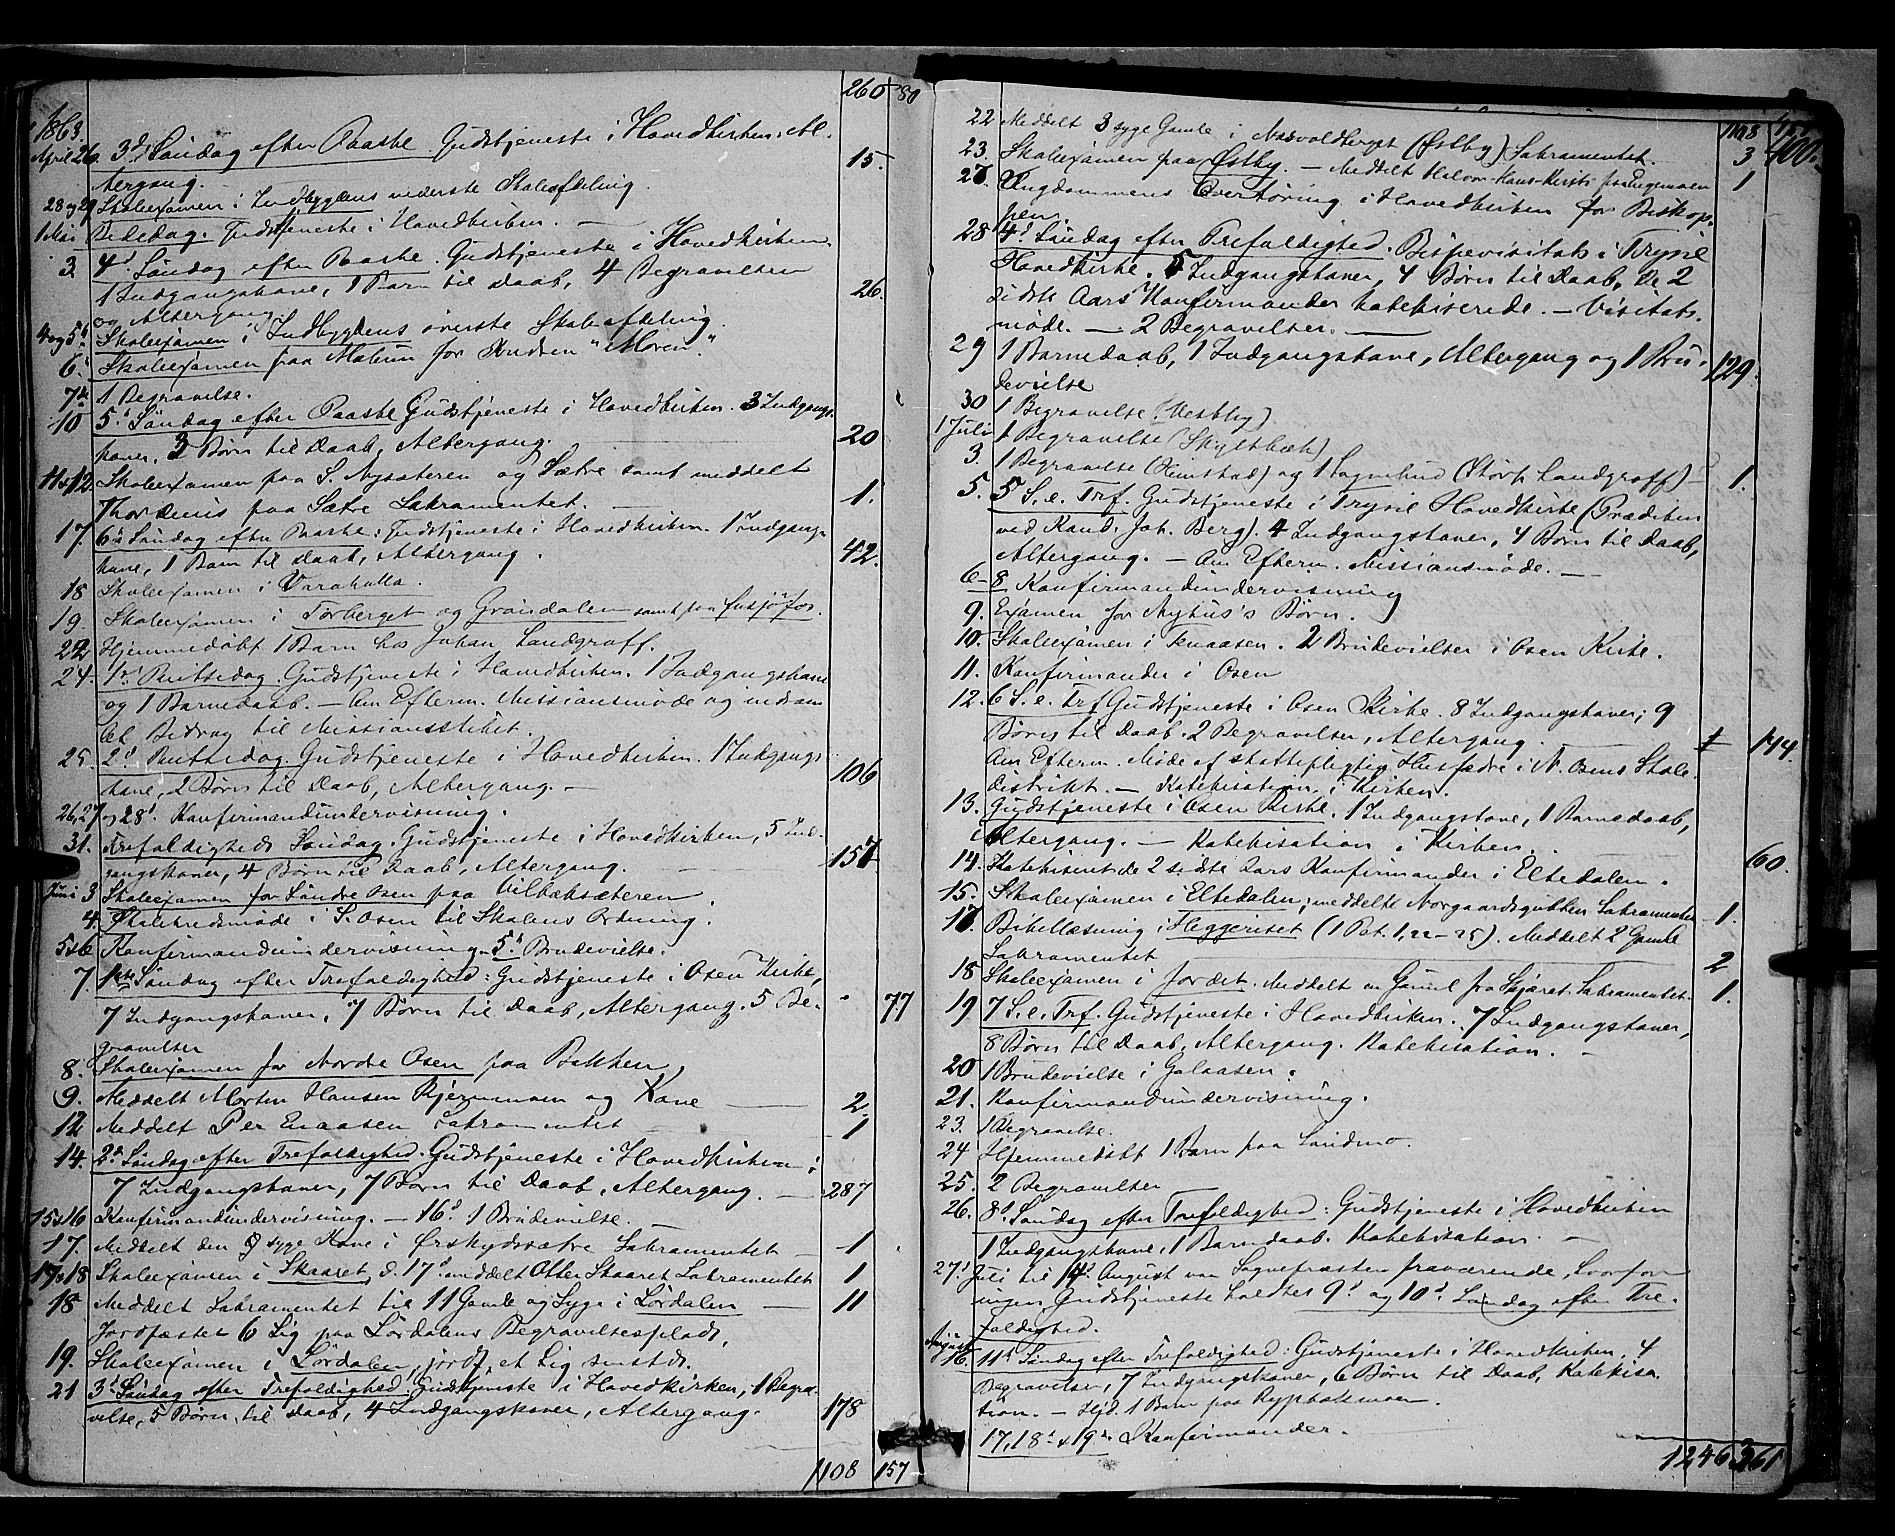 260 80
1863.
April 26. 3d. Søndag efter Paaske. Gudstjeneste i Hovedkirken. Al-
tergang. 15
28 og 29 Skoleexamen i Indbygdens nederste Skoleafdeling.
1 Mai Bededag. Gudstjeneste i Hovedkirken.
3. 4d. Søndag efter Paaske. Gudstjeneste i Hovedkirken.
1 Indgangskone, 1 Barn til Daab, 4 Begravelser
og Altergang. 26.
4 og 5d. Skoleexamen i Indbygdens øverste Skoleafdeling.
6d. Skoleexamen paa Moren for Knudsen "Moren".
7de 1 Begravelse.
10 5d. Søndag efter Paaske Gudstjeneste i Hovedkirken. 3 Indgangs-
koner, 3 Børn til Daab, Altergang. 20
11 & 12. Skoleexamen paa S. Nysæteren og Sætre samt meddelt
Thordenis paa Sætre Sakramentet. 1.
17. 6te Søndag efter Paaske: Gudstjeneste i Hovedkirken. 1 Indgangs-
kone, 1 Barn til Daab, Altergang. 42.
18 Skoleexamen i Varaholla.
19. Skoleexamen i Torberget og Grøndalen samt paa
22 Hjemmedøbt 1 Barn hos Johan Landgraff.
24. 1ste Pintsedag. Gudstjeneste i Hovedkirken. 1 Indgangskone
og 1 Barnedaab. – Om Efterm. Missionsmøde og indsam-
let Bidrag til Missionsskibet.
25. 2d. Pintsedag. Gudstjeneste i Hovedkirken. 1 Indgangs-
kone, 2 Børn til Daab, Altergang. – 106
26, 27 og 28d. Konfirmandundervisning.
31. Trefoldigheds Søndag. Gudstjeneste i Hovedkirken, 5 Ind-
gangskoner, 4 Børn til Daab, Altergang. 157
Juni 3 Skoleexamen for Søndre Osen paa Ulbaksæteren.
4. Skolekredsmøde i S. Osen til Skolens Ordning.
5 & 6 Konfirmandundervisning. 5d. Brudevielse.
7. 1ste Søndag efter Trefoldighed: Gudstjeneste i Osen Kirke,
7 Indgangskoner, 7 Børn til Daab, Altergang. 5 Be- " 77
gravelser
8. Skoleexamen for Nordre Osen paa Bakken.
9. Meddelt Morten Hansen Kjernmoen og Kone 2.
12 Meddelt Per Enaasen Sakramentet 1
14. 2d. Søndag efter Trefoldighed. Gudstjeneste i Hovedkirken:
7 Indgangskoner, 7 Børn til Daab, Altergang. – 287
15 & 16 Konfirmandundervisning. – 16d. 1 Brudevielse.
17. Meddelt den syge Kone i Ørskydsætre Sakramentet – 1
17 & 18 Skoleexamen i Skaaret, d. 17d. meddelt Otter Skaaret Sakramentet 1
18 Meddelt Sakramentet til 11 Gamle og Syge i Lørdalen – 11
Jordfæstet 6 Lig paa Lørdalens Begravelsesplads.
19. Skoleexamen i Lørdalen, jordf. et Lig smstds.
21 3d. Søndag efter Trefoldighed. Gudstjeneste i Hovedkirken, 1 Begra-
velse, 5 Børn til Daab, 4 Indgangskoner, Altergang. 178
1108 157
22 Meddelt 3 syge Gamle i Næsvoldberget (Østby) Sakramentet. 3
23. Skoleexamen paa Østby. – Meddelt 1
27. Ungdommens Overhøring i Hovedkirken for Biskop-
pen.
28 4d. Søndag efter Trefoldighed. Bispevisitats i Trysil
Hovedkirke. 5 Indgangskoner, 4 Børn til Daab. De 2
sidste Aars Konfirmander katekiserede. – Visitats-
møde. – 2 Begravelser.
29 1 Barnedaab, 1 Indgangskone, Altergang og 1 Bru- 129.
devielse
30 1 Begravelse (Vestby)
1 Juli 1 Begravelse (Skyltbæk)
3. 1 Begravelse (Kimstad) og 1 Sognebud (Størk Landgraff) – 1.
5. 5 S. e. Trf. Gudstjeneste i Trysil Hovedkirke (Prædiken
ved Kand. Joh. Berg). 4 Indgangskoner, 4 Børn til Daab,
Altergang. – Om Efterm. Missionsmøde. –
6–8 Konfirmandundervisning
9. Examen for Nyhus's Børn.
10. Skoleexamen i Knaasen. 2 Brudevielser i Osen Kirke.
11. Konfirmander i Osen
12. 6 S. e. Trf Gudstjeneste i Osen Kirke. 8 Indgangskoner, 9
Børn til Daab. 2 Begravelser, Altergang. 144.
Om Efterm. Møde af skattepligtige Husfædre i N. Osens Skole-
distrikt. – Katekisation i Kirken.
13. Gudstjeneste i Osen Kirke. 1 Indgangskone, 1 Barnedaab,
Altergang. – Katekisation i Kirken. 60.
14. Katekiseret de 2 sidste Aars Konfirmander i Eltedalen.
15. Skoleexamen i Eltedalen; meddelte Norgaardsgubben Sakramentet 1.
17. Bibellæsning i Heggeriset (1 Pet. 1, 22–25). Meddelt 2 Gamle
Sakramentet 2
18 Skoleexamen i Jordet. Meddelt en Gaml fra Sjøret Sakramentet. 1.
19 7 S. e. Trf. Gudstjeneste i Hovedkirken. 7 Indgangskoner,
8 Børn til Daab, Altergang. Katekisation. –
20 1 Brudevielse i Galaasen.
21. Konfirmandundervisning.
23. 1 Begravelse.
24 Hjemmedøbt 1 Barn paa Sandmo.
25. 2 Begravelser
26. 8d. Søndag efter Trefoldighed: Gudstjeneste i Hovedkirken
1 Indgangskone, 1 Barnedaab. Katekisation. –
27d. Juli til 14d. August var Sognepræsten fraværende, hvorfor
ingen Gudstjeneste holdtes 9d. og 10d. Søndag efter Tre-
foldighed.
August 16. 11te Søndag efter Trefoldighed: Gudstjeneste i Hovedkirken. 4
Begravelser, 7 Indgangskoner, 6 Børn til Daab, Katekisa-
tion. – Hjd. 1 Barn paa Rypbakmoen.
17, 18d. & 19de Konfirmander.
1246 361